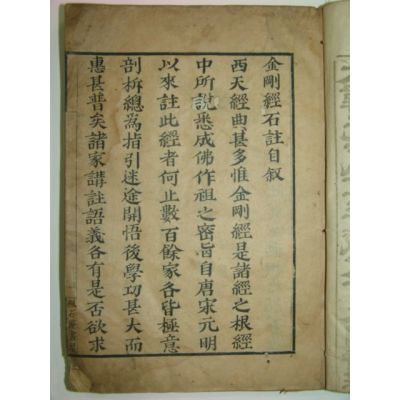 金剛經石註自叙
西天經典甚多惟金剛經是諸經之根經
中所說悉成佛作祖之密旨自唐宋元明
以來註此經者何止數百餘家各皆極意
剖拆總為指引迷途開悟後學功甚大而
惠甚普矣諸家講註語義各有是否欲求